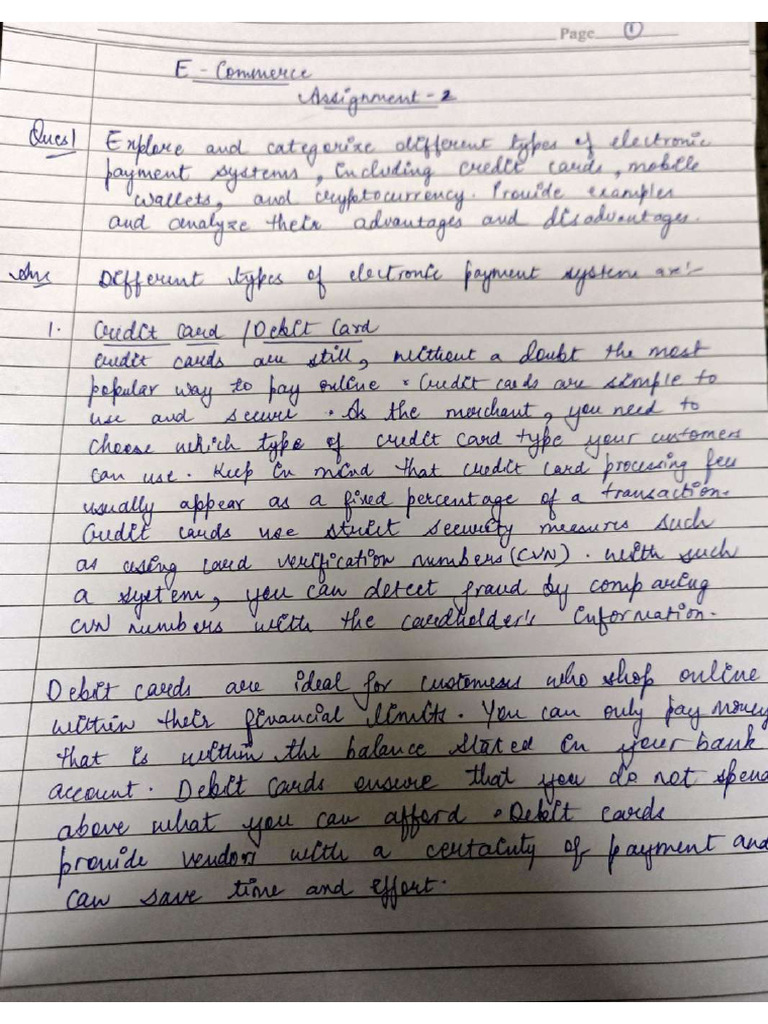 Page 1
E - Commerce
Assignment - 2
Ques1 Explore and categorize different types of electronic
payment systems, including credit cards, mobile
wallets, and cryptocurrency. Provide examples
and analyze their advantages and disadvantages.
Ans Different types of electronic payment system are:-
1. Credit Card / Debit Card
Credit cards are still, without a doubt the most
popular way to pay online. Credit cards are simple to
use and secure. As the merchant, you need to
choose which type of credit card type your customers
can use. Keep in mind that credit card processing fees
usually appear as a fixed percentage of a transaction.
Credit cards use strict security measures such
as using card verification numbers (CVN). with such
a system, you can detect fraud by comparing
CVN numbers with the cardholder's information.
Debit cards are ideal for customers who shop online
within their financial limits. You can only pay money
that is within the balance stated in your bank
account. Debit cards ensure that you do not spend
above what you can afford. Debit cards
provide vendors with a certainty of payment and
can save time and effort.